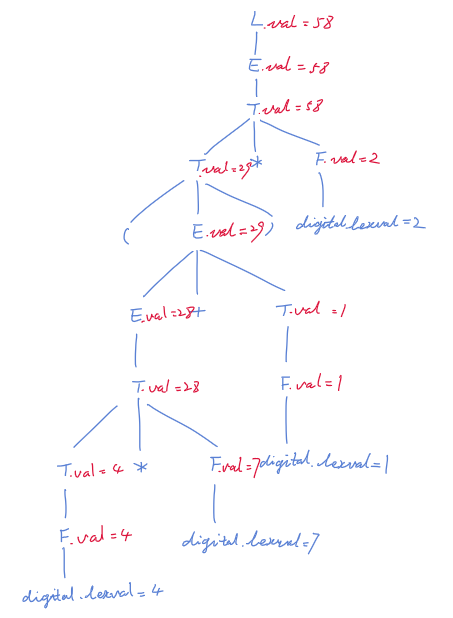 L.val = 58
E.val = 58
T.val = 58
T.val = 29 * F.val = 2
( E.val = 29 ) digital.lexval = 2
E.val = 28 + T.val = 1
T.val = 28 F.val = 1
T.val = 4 * F.val = 7 digital.lexval = 1
F.val = 4 digital.lexval = 7
digital.lexval = 4